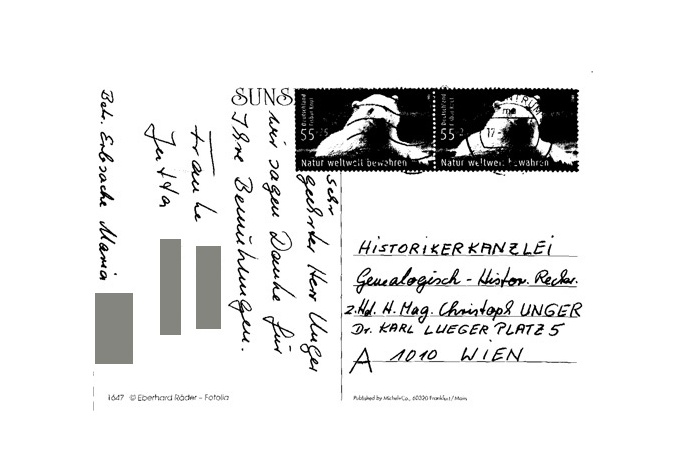 SUNS
Sehr
geehrter Herr Unger
wir sagen Danke für
Ihre Bemühungen.
Frauke
Jutta
Betr. Erbsache Maria
Deutschland
55
Natur weltweit bewahren
Deutschland
55
Natur weltweit bewahren
HISTORIKERKANZLEI
Genealogisch - Histor. Recher.
z.Hd. H. Mag. Christoph UNGER
Dr. KARL LUEGER PLATZ 5
A 1010 WIEN
1647 © Eberhard Räder - Fotolia
Published by Michel+Co., 60320 Frankfurt/Main